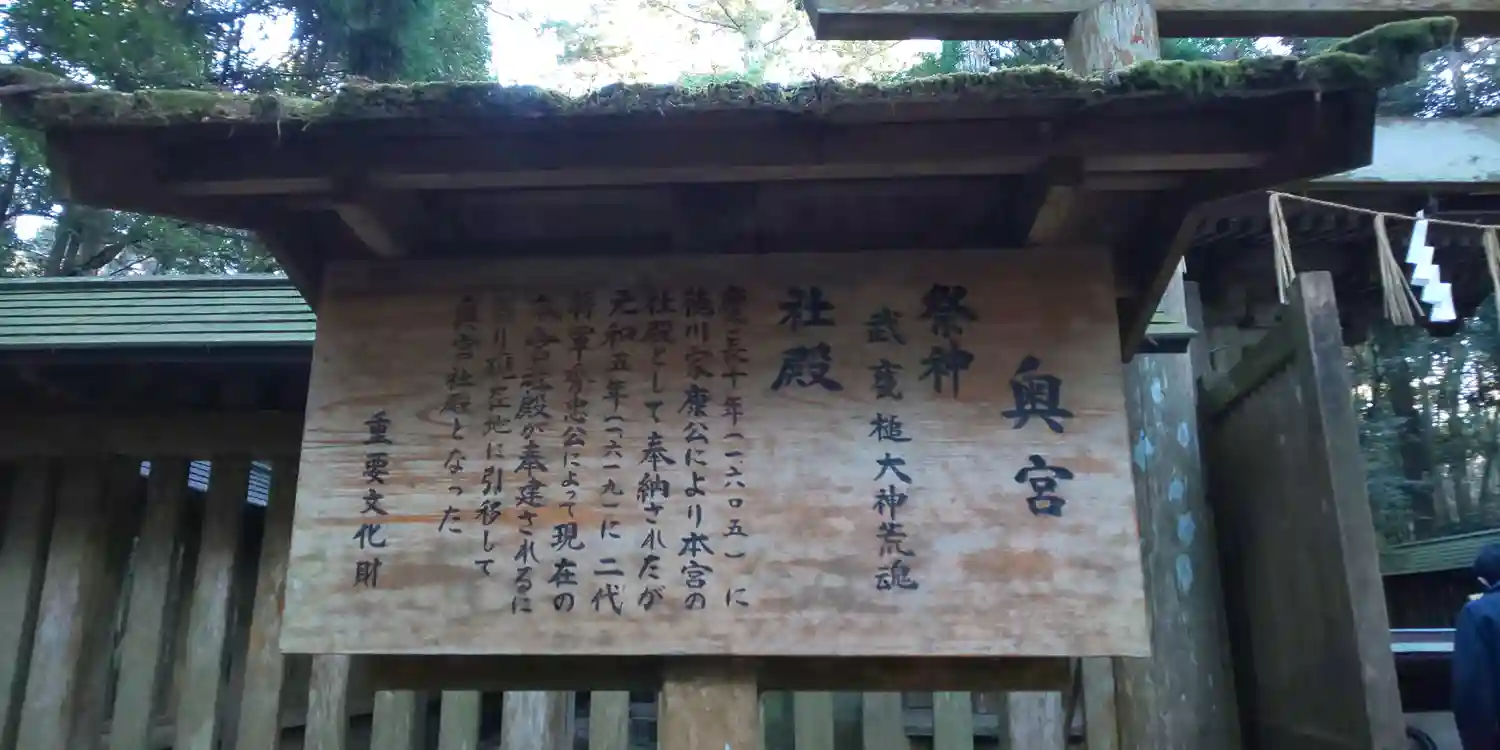 奥宮
祭神
武甕槌大神荒魂
社殿
慶長十年(一六〇五)に
徳川家康公により本宮の
社殿として奉納されたが
元和五年(一六一九)に二代
将軍秀忠公によって現在の
本宮社殿が奉建されるに
当り現在地に引移して
奥宮社殿となった
重要文化財